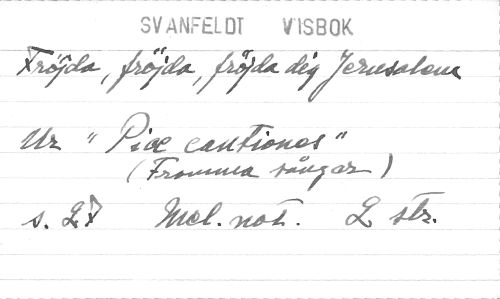 SVANFELDT VISBOK
Fröjda, fröjda, fröjda dig Jerusalem
Ur "Piæ cantiones"
(Fromma sångar)
s. 27 Mel. not. 2 str.